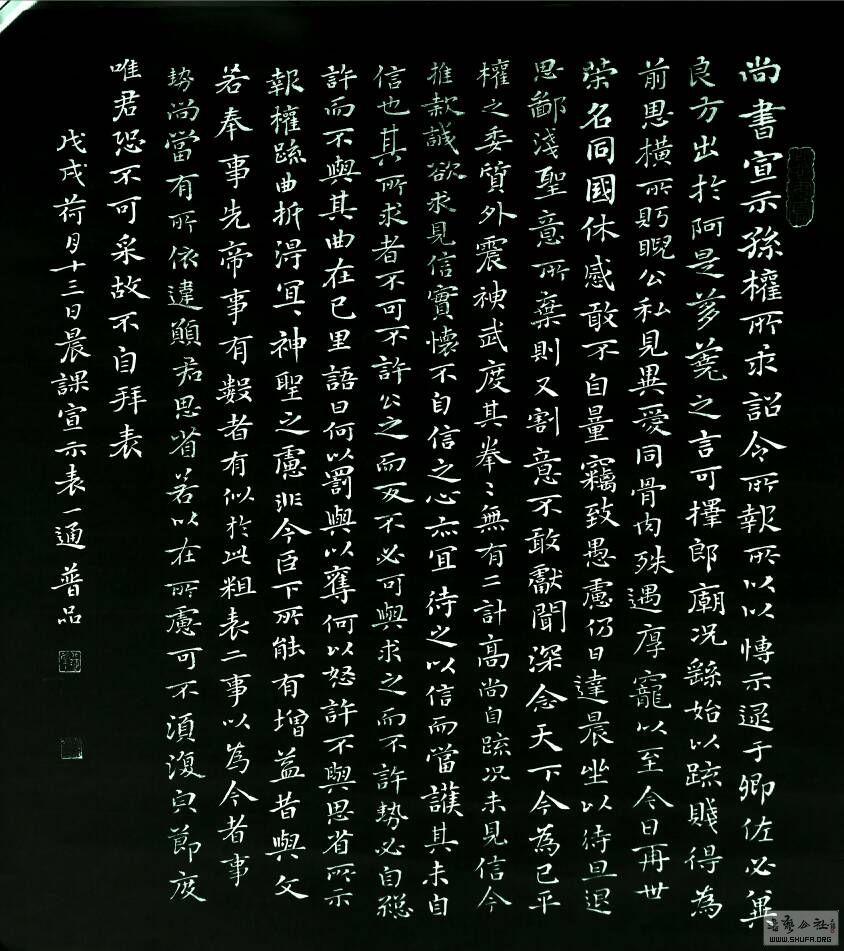 尚書宣示孫權所求詔令所報所以以博示逮于卿佐必冀
良方出於阿是芻蕘之言可擇郎廟況繇始以疏賤得為
前恩橫所眄睨公私見異愛同骨肉殊遇厚寵以至今日再世
榮名同國休慼敢不自量竊致愚慮仍日達晨坐以待旦退
思鄙淺聖意所棄則又割意不敢獻聞深念天下今為已平
權之委質外震神武度其拳〻無有二計高尚自疏況未見信今
推款誠欲求見信實懷不自信之心亦宜待之以信而當護其未自
信也其所求者不可不許公之而反不必可與求之而不許勢必自絕
許而不與其曲在己里語曰何以罰與以奪何以怒許不與思省所示
報權疏曲折得宜〻神聖之慮非今臣下所能有增益昔與文
若奉事先帝事有數者有似於此粗表二事以為今者事
勢尚當有所依違願君思省若以在所慮可不須復皃節度
唯君恐不可采故不自拜表
戊戌荷月十三日晨課宣示表一通普品
WWW.SHUFA.ORG